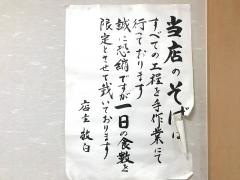 当店のそばは
すべての工程を手作業にて
行っております
誠に恐縮ですが一日の食数を
限定とさせて戴いております
店主敬白